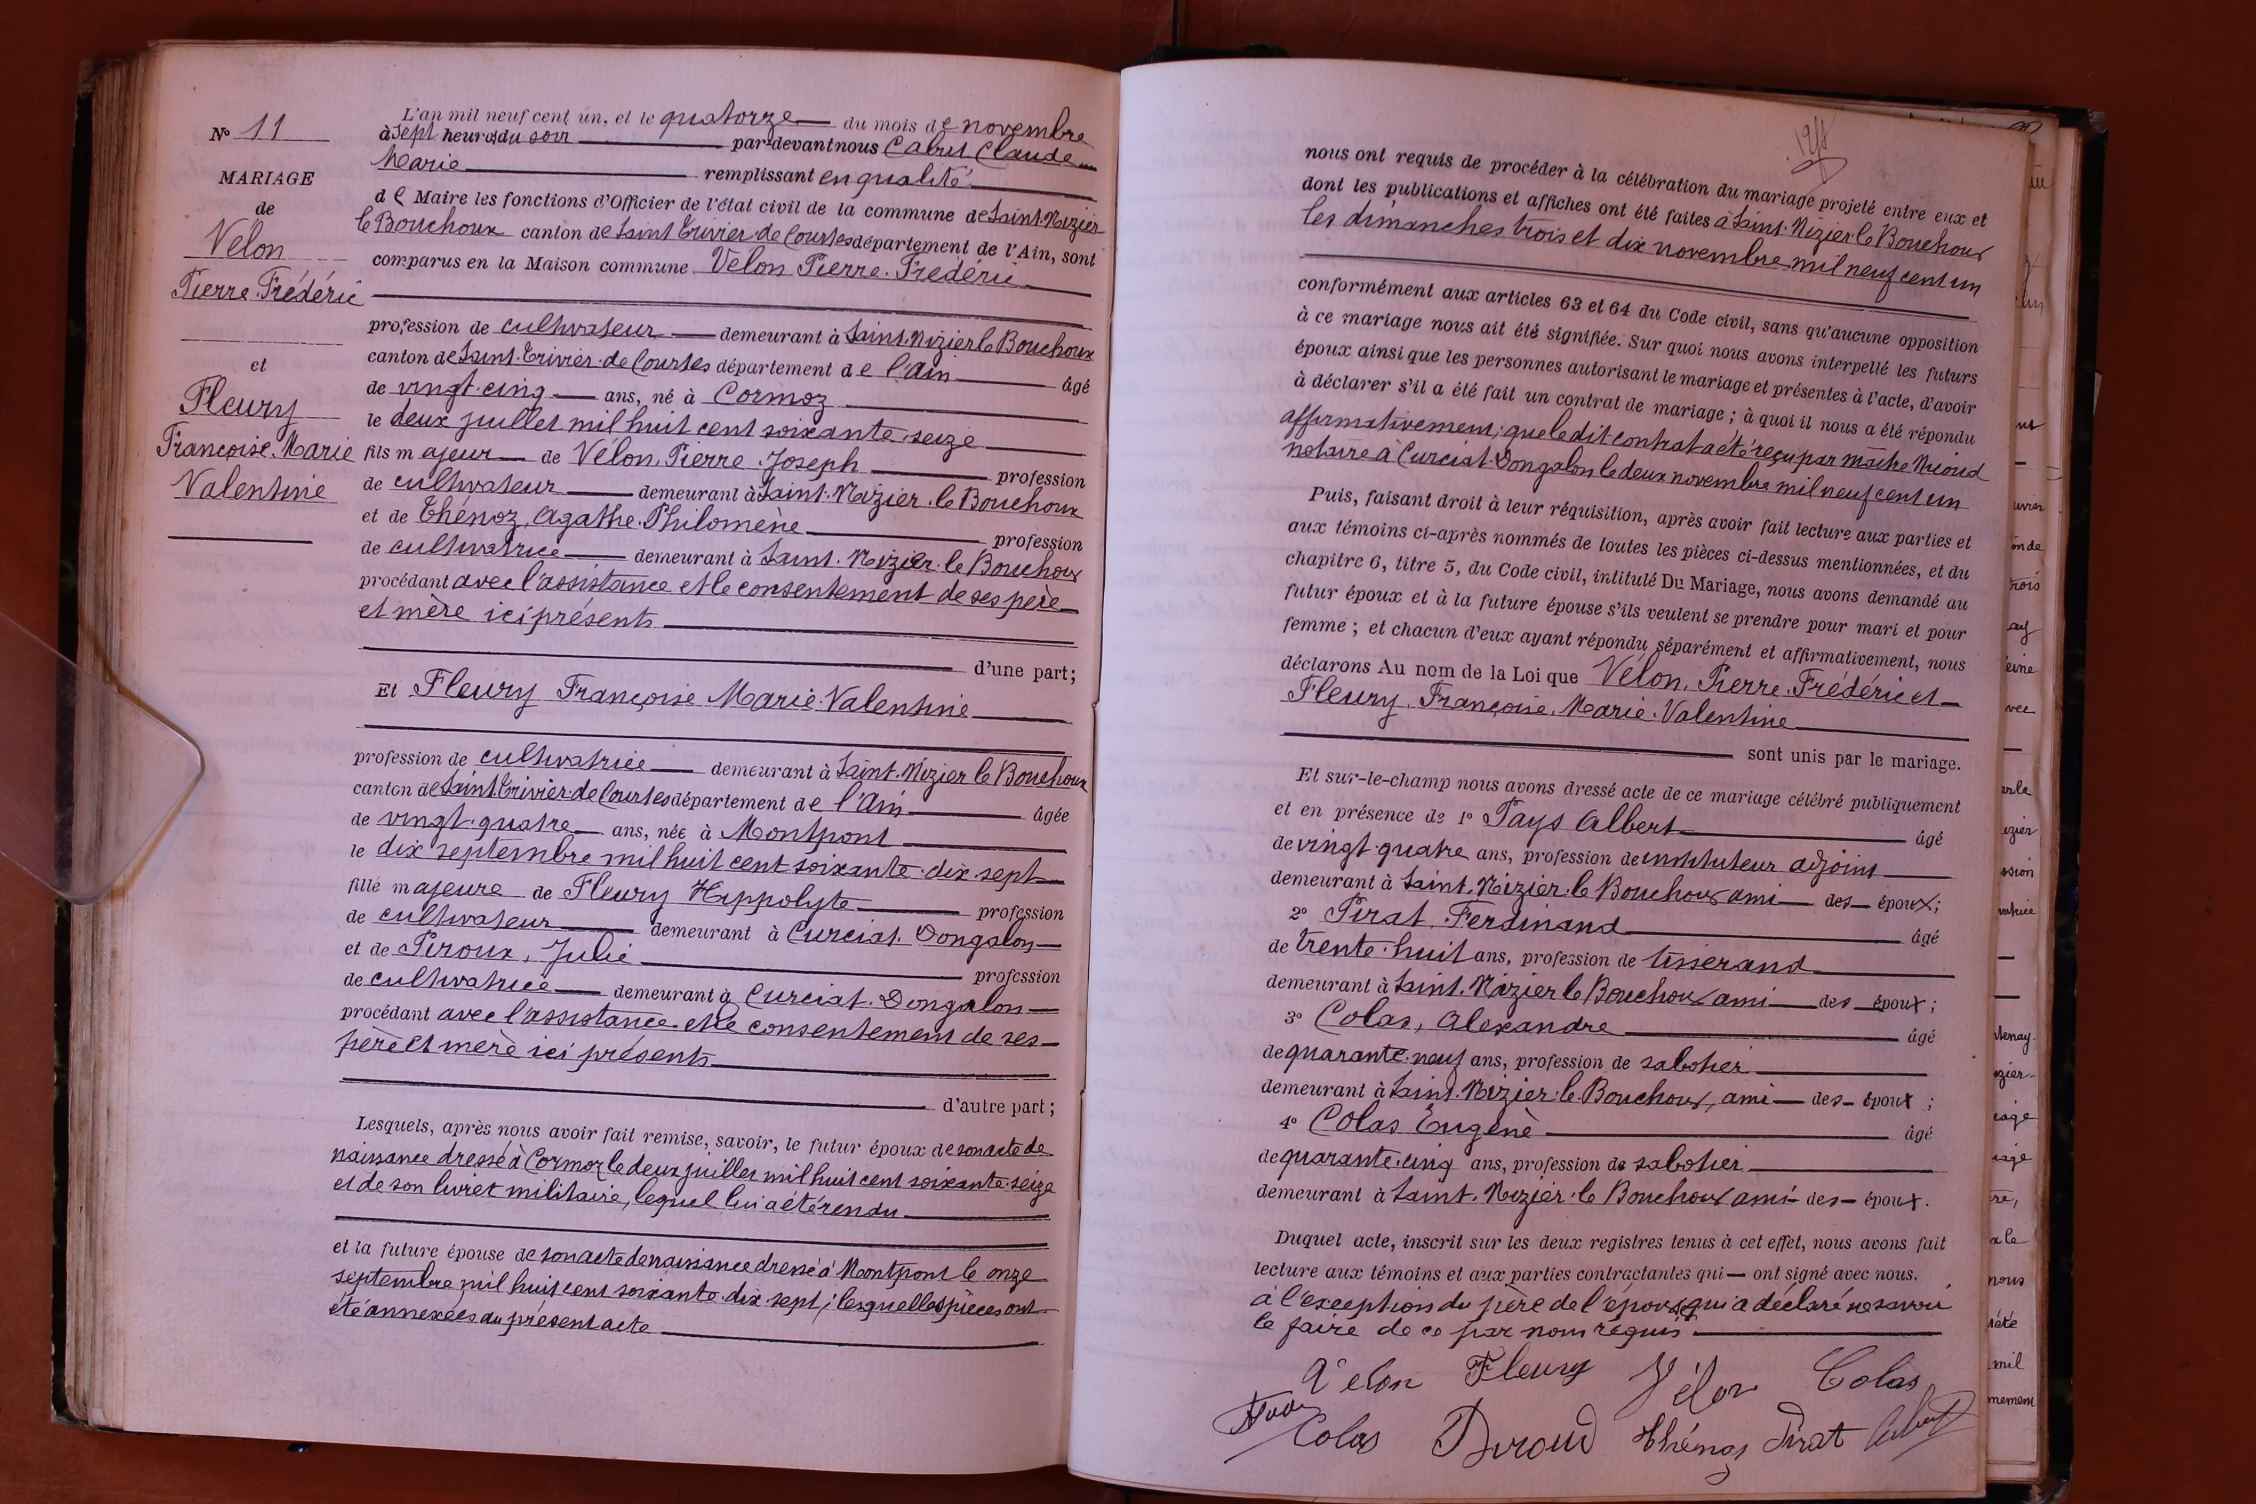 N° 11
MARIAGE
de
Vélon
Pierre Frédéric
et
Fleury
Françoise Marie
Valentine
L'an mil neuf cent un, et le quatorze du mois de novembre
à sept heures du soir par-devant nous Cabut Claude
Marie remplissant en qualité
de Maire les fonctions d'Officier de l'état civil de la commune de Saint-Nizier
le Bouchoux canton de Saint Trivier-de Courtes département de l'Ain, sont
comparus en la Maison commune Velon Pierre-Frédéric
profession de cultivateur demeurant à Saint-Nizier le Bouchoux
canton de Saint-Trivier-de Courtes département de l'Ain âgé
de vingt-cinq ans, né à Cormoz
le deux juillet mil huit cent soixante-seize
fils majeur de Vélon, Pierre Joseph profession
de cultivateur demeurant à Saint-Nizier-le Bouchoux
et de Thénoz, Agathe-Philomène profession
de cultivatrice demeurant à Saint-Nizier-le Bouchoux
procédant avec l'assistance et le consentement de ses père
et mère ici présents
d'une part;
Et Fleury Françoise Marie-Valentine
profession de cultivatrice demeurant à Saint-Nizier le Bouchoux
canton de Saint-Trivier-de Courtes département de l'Ain âgée
de vingt-quatre ans, née à Montpont
le dix septembre mil huit cent soixante-dix sept
fille majeure de Fleury Hippolyte profession
de cultivateur demeurant à Curciat-Dongalon
et de Piroux, Julie profession
de cultivatrice demeurant à Curciat-Dongalon
procédant avec l'assistance et le consentement de ses
père et mère ici présents
d'autre part;
Lesquels, après nous avoir fait remise, savoir, le futur époux de son acte de
naissance dressé à Cormoz le deux juillet mil huit cent soixante-seize
et de son livret militaire, lequel lui a été rendu
et la future épouse de son acte de naissance dressé à Montpont le onze
septembre mil huit cent soixante-dix sept; lesquelles pièces ont
été annexées au présent acte
nous ont requis de procéder à la célébration du mariage projeté entre eux et
dont les publications et affiches ont été faites à Saint-Nizier-le Bouchoux
les dimanches trois et dix novembre mil neuf cent un
conformément aux articles 63 et 64 du Code civil, sans qu'aucune opposition
à ce mariage nous ait été signifiée. Sur quoi nous avons interpellé les futurs
époux ainsi que les personnes autorisant le mariage et présentes à l'acte, d'avoir
à déclarer s'il a été fait un contrat de mariage; à quoi il nous a été répondu
affirmativement; que le dit contrat a été reçu par maître
notaire à Curciat-Dongalon le deux novembre mil neuf cent un
Puis, faisant droit à leur réquisition, après avoir fait lecture aux parties et
aux témoins ci-après nommés de toutes les pièces ci-dessus mentionnées, et du
chapitre 6, titre 5, du Code civil, intitulé Du Mariage, nous avons demandé au
futur époux et à la future épouse s'ils veulent se prendre pour mari et pour
femme; et chacun d'eux ayant répondu séparément et affirmativement, nous
déclarons Au nom de la Loi que Vélon, Pierre-Frédéric et
Fleury, Françoise, Marie-Valentine
sont unis par le mariage.
Et sur-le-champ nous avons dressé acte de ce mariage célébré publiquement
et en présence de 1° Pays Albert âgé
de vingt-quatre ans, profession de instituteur adjoint
demeurant à Saint-Nizier-le Bouchoux ami des époux;
2° Pirat, Ferdinand âgé
de trente-huit ans, profession de tisserand
demeurant à Saint-Nizier le Bouchoux ami des époux;
3° Colas, Alexandre âgé
de quarante-neuf ans, profession de sabotier
demeurant à Saint-Nizier-le-Bouchoux, ami des époux;
4° Colas Eugène âgé
de quarante-cinq ans, profession de sabotier
demeurant à Saint-Nizier-le Bouchoux ami des époux.
Duquel acte, inscrit sur les deux registres tenus à cet effet, nous avons fait
lecture aux témoins et aux parties contractantes qui ont signé avec nous.
à l'exception du père de l'époux qui a déclaré ne savoir
le faire de ce par nous requis
Vélon Fleury Vélon Colas
Colas Thénoz Pirat Cabut